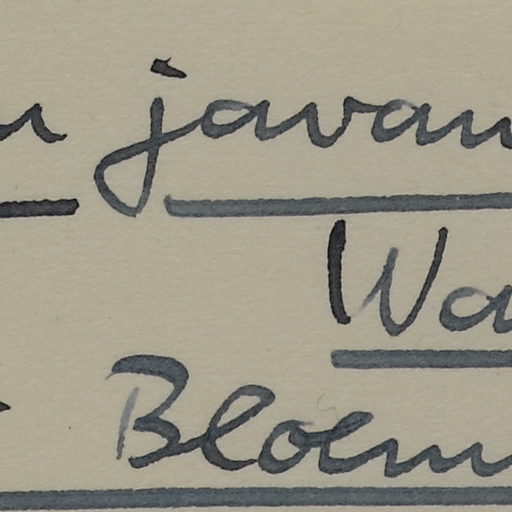 u javan
Wa
Bloem